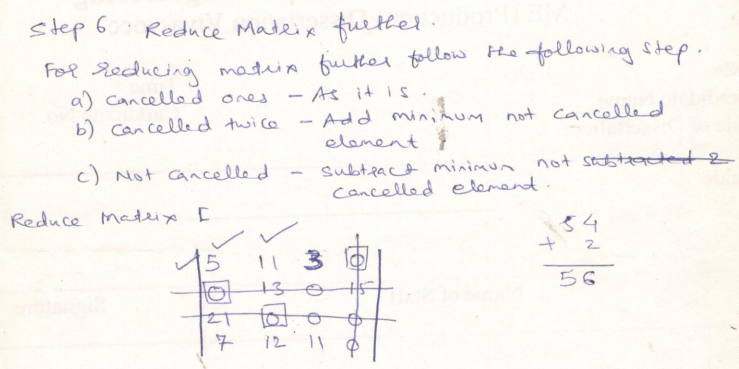 Step 6 Reduce Matrix further.
For reducing matrix further follow the following step.
a) Cancelled ones - As it is.
b) Cancelled twice - Add minimum not cancelled
element
c) Not cancelled - Subtract minimum not subtracted 2
Cancelled element.
Reduce Matrix I
54
+ 2
56
5 11 3 0
0 13 0 15
21 0 0 0
7 12 11 0